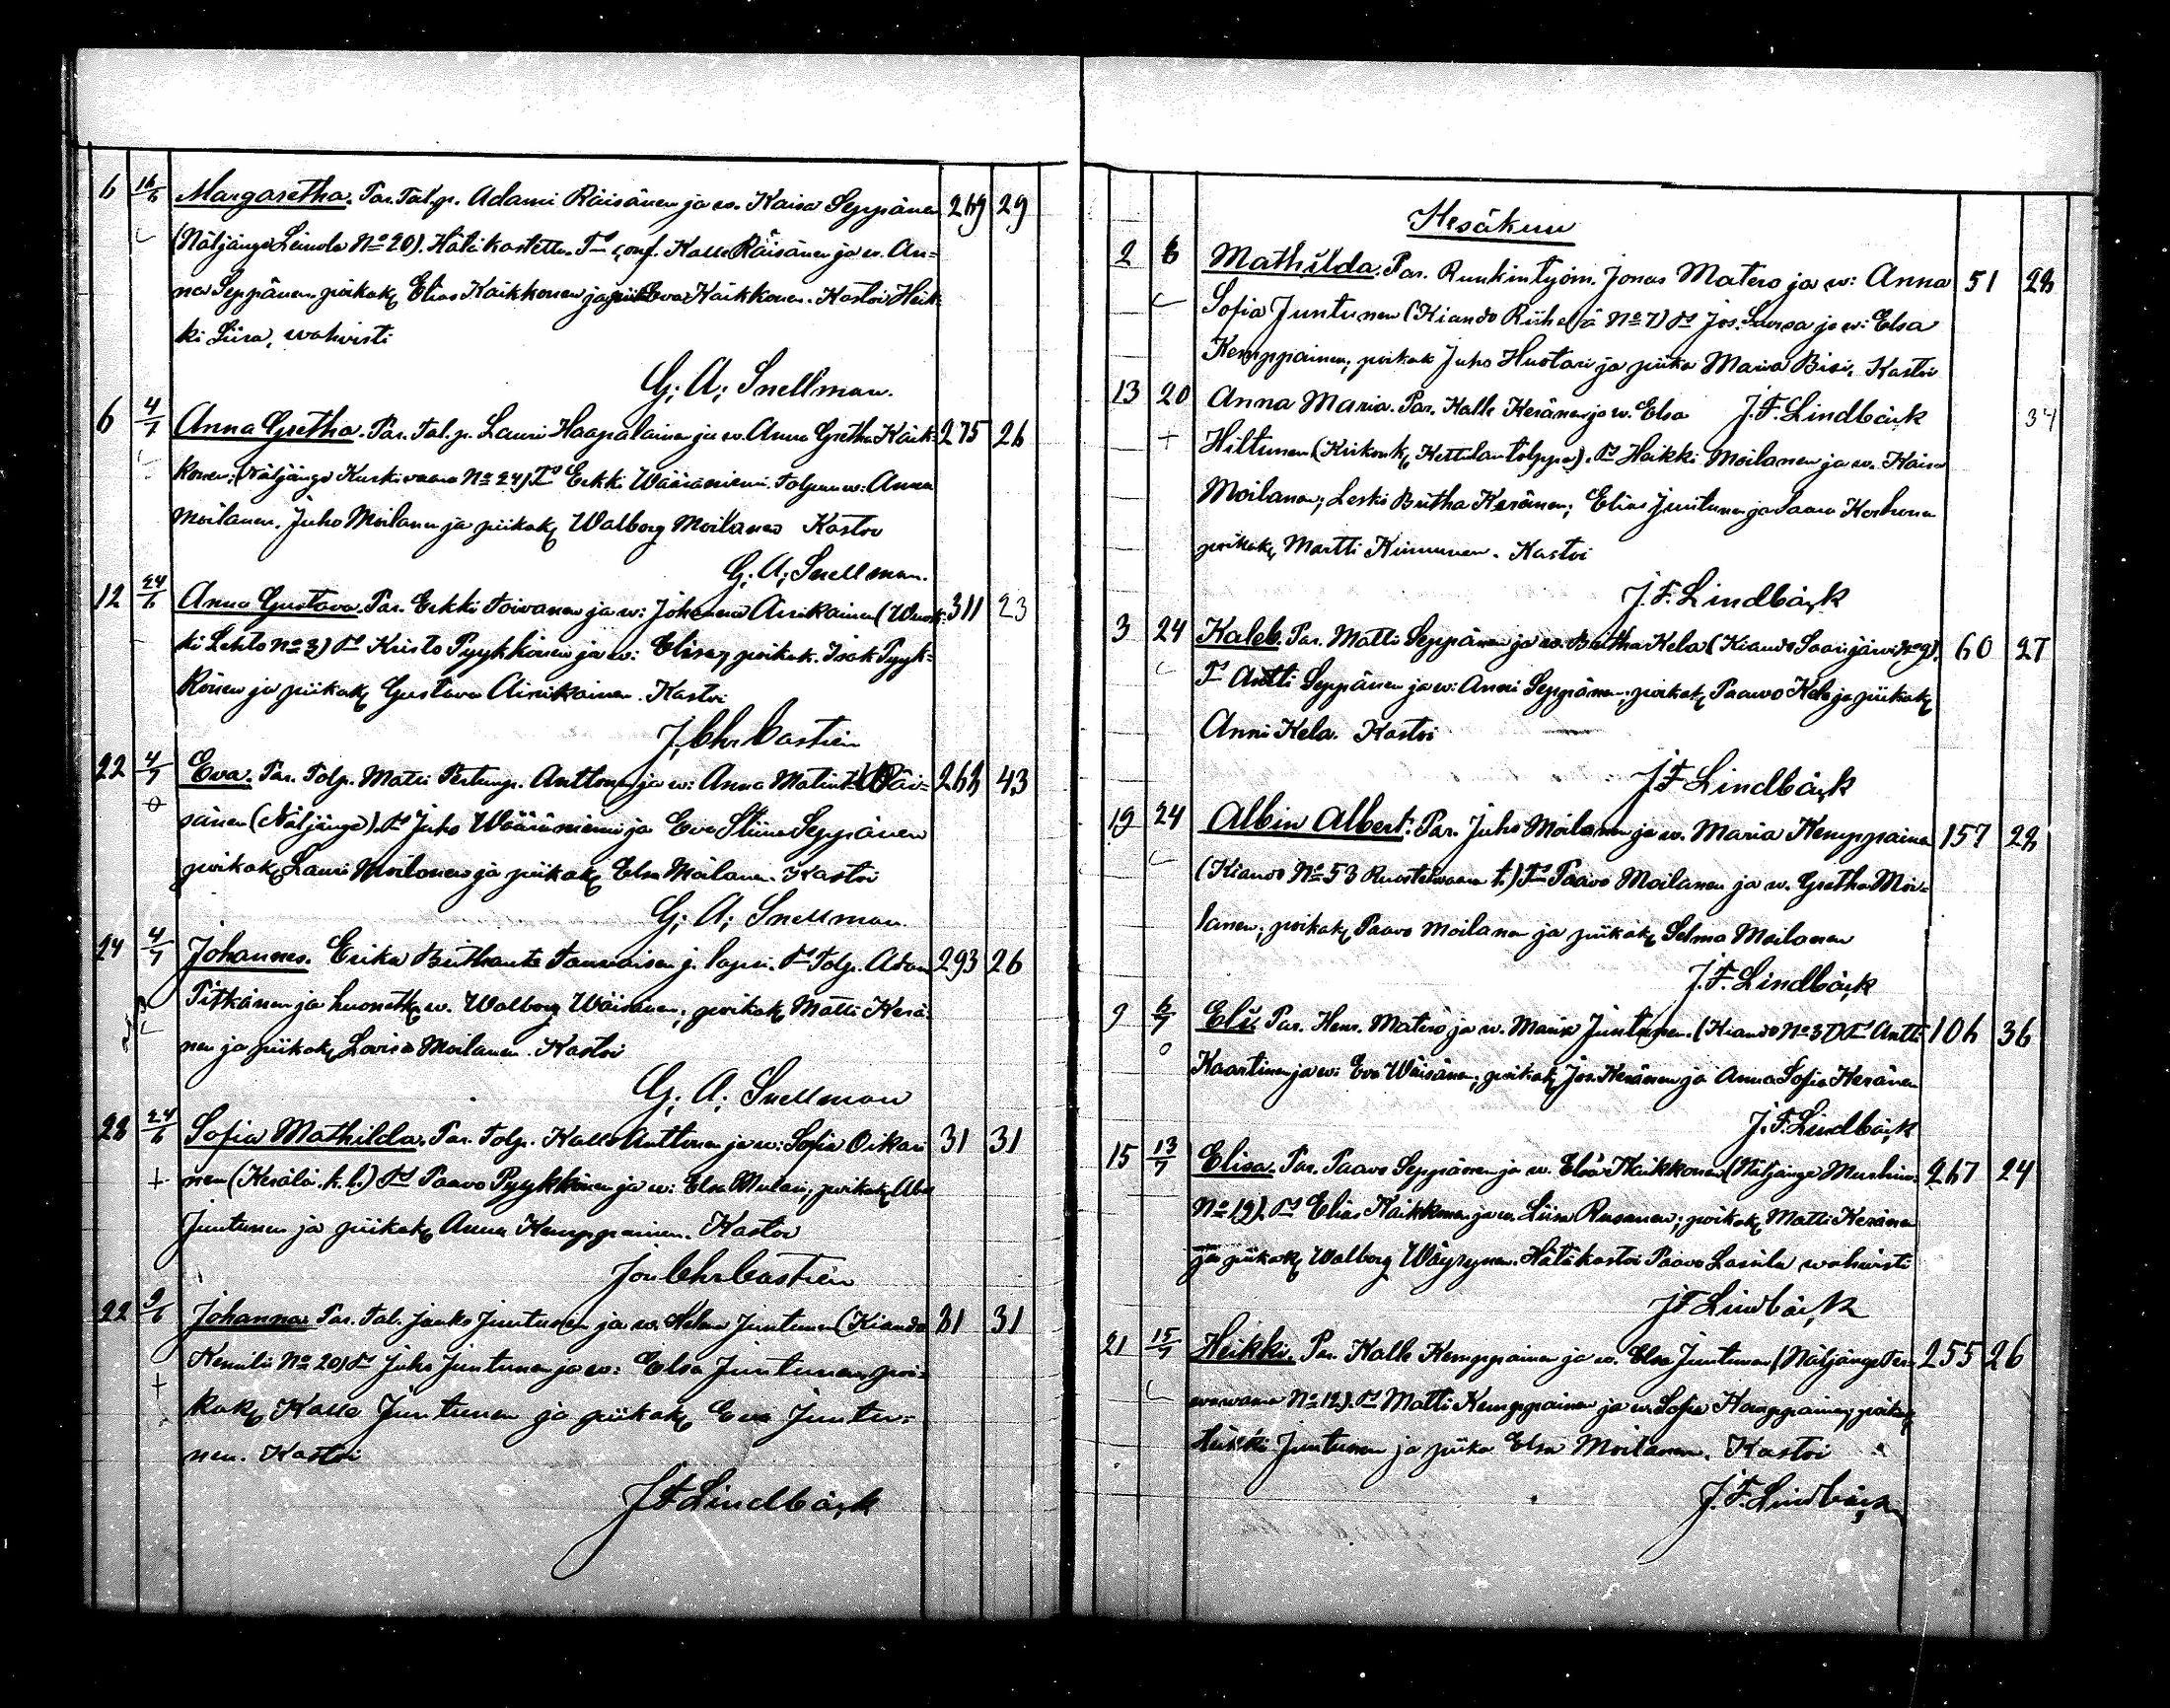 6 16/6 Margaretha. Par. Tal.p. Adami Räisänen ja w. Kaisa Seppänen 269 29
(Näljängö Leinola No 20). Hätäkastettu. Ts conf. Kalle Räisänen ja w. An=
na Seppänen, poikak. Elias Kaikkonen ja piik. Eva Kaikkonen. Kastoi Heik
ki Liira, wahvisti
G. A. Snellman.
6 4/7 Anna Gretha. Par. Tal.p. Lauri Haapalainen ja w. Anna Gretha Kaik- 275 26
konen, (Näljängö Kurkivaara No 24) Ts Erkki Wääräniemi. Talp. ja w: Anna
Moilanen. Juho Moilanen ja piikak. Walborg Moilanen Kastoi
G. A. Snellman.
12 24/6 Anna Gustava. Par. Erkki Toivanen ja w: Johanna Airikainen (Wuok- 311 23
ki Lehto No 3) Ts Kristo Pyykkönen ja w: Elisa, poikak. Isak Pyyk=
könen ja piikak. Gustava Airikainen. Kastoi
J. Chr. Castrén
22 4/7 Eva. Par. Talp. Matti Perttunp. Anttonen ja w: Anna Matint. Räi= 268 43
sänen (Näljängö). Ts Juho Wääräniemi ja Eva Stiina Seppänen
poikak. Lauri Moilanen ja piikak. Elsa Moilanen. Kastoi
G. A. Snellman.
24 4/7 Johannes. Erika Brithante Tauriaisen j. lapsi. Ts Talp. Adam 293 26
Pitkänen ja huonetk. w. Walborg Wäisänen, poikak. Matti Kerä-
nen ja piikak. Lovisa Moilanen. Kastoi
G. A. Snellman
28 24/6 Sofia Mathilda. Par. Talp. Kalle Anttonen ja w: Sofia Oikari 31 31
nen (Kerälä. k. l.) Ts Paavo Pyykkönen ja w: Elsa Mulari, poikak. Abel
Juntunen ja piikak. Anna Kemppainen. Kastoi
Jon Chr Castrén
22 9/6 Johanna. Par. Tal. Jaako Juntunen ja w. Helena Juntunen (Kiando 31 31
Kemilä No 20) Ts Juho Juntunen ja w: Elsa Juntunen, poi-
kak. Kalle Juntunen ja piikak. Eva Juntu=
nen. Kastoi
J F Lindbäck
Kesäkuu
2 6 Mathilda. Par. Ruukintyöm. Jonas Matero ja w: Anna 51 28
Sofia Juntunen (Kiando Riihelä No 7) Ts Jos. Laursa ja w: Elsa
Kemppainen, poikak Juho Huotari ja piika Maria Bisi. Kastoi
13 20 Anna Maria. Par. Kalle Keränen ja w. Elsa J. F. Lindbäck 34
Hiltunen (Kirkonk. Kettulan tölppä). Ts Heikki Moilanen ja w. Kaisa
Moilanen; Leski Britha Keränen; Elias Juntunen ja Saara Korhonen
poikak. Martti Kinnunen. Kastoi
J. F. Lindbäck
3 24 Kaleb. Par. Matti Seppänen ja w. Britha Kela (Kiando Saarijärvi No 9). 60 27
Ts Antti Seppänen ja w: Anni Seppänen, poikak. Paavo Kela ja piikak.
Anni Kela. Kastoi
J F Lindbäck
19 24 Albin Albert. Par. Juho Moilanen ja w. Maria Kemppainen 157 28
(Kiando No 53 Ruostelwaara t.) Ts Paavo Moilanen ja w. Gretha Moi-
lanen; poikak. Paavo Moilanen ja piikak. Selma Moilanen
J. F. Lindbäck
9 6/7 Eli. Par. Henr. Matero ja w. Maria Juntunen. (Kiando No 37) Ts Antti 106 36
Kaartinen ja w: Eva Wäisänen, poikak. Jos. Keränen ja Anna Sofia Keränen
J. F. Lindbäck
15 13/7 Elisa. Par. Paavo Seppänen ja w. Elsa Kaikkonen (Näljängö 267 24
No 19). Ts Elias Kaikkonen ja w. Liisa Rusanen; poikak. Matti Keränen
ja piikak. Walborg Wäyrynen. Hätäkastoi Paavo Lassila wahvisti
J F Lindbäck
21 15/7 Heikki. Par. Kalle Kemppainen ja w. Elsa Juntunen (Näljängö Ter- 255 26
wawaara No 12). Ts Matti Kemppainen ja w. Sofia Kemppainen, poikak.
Heikki Juntunen ja piika Elsa Moilanen. Kastoi
J. F. Lindbäck